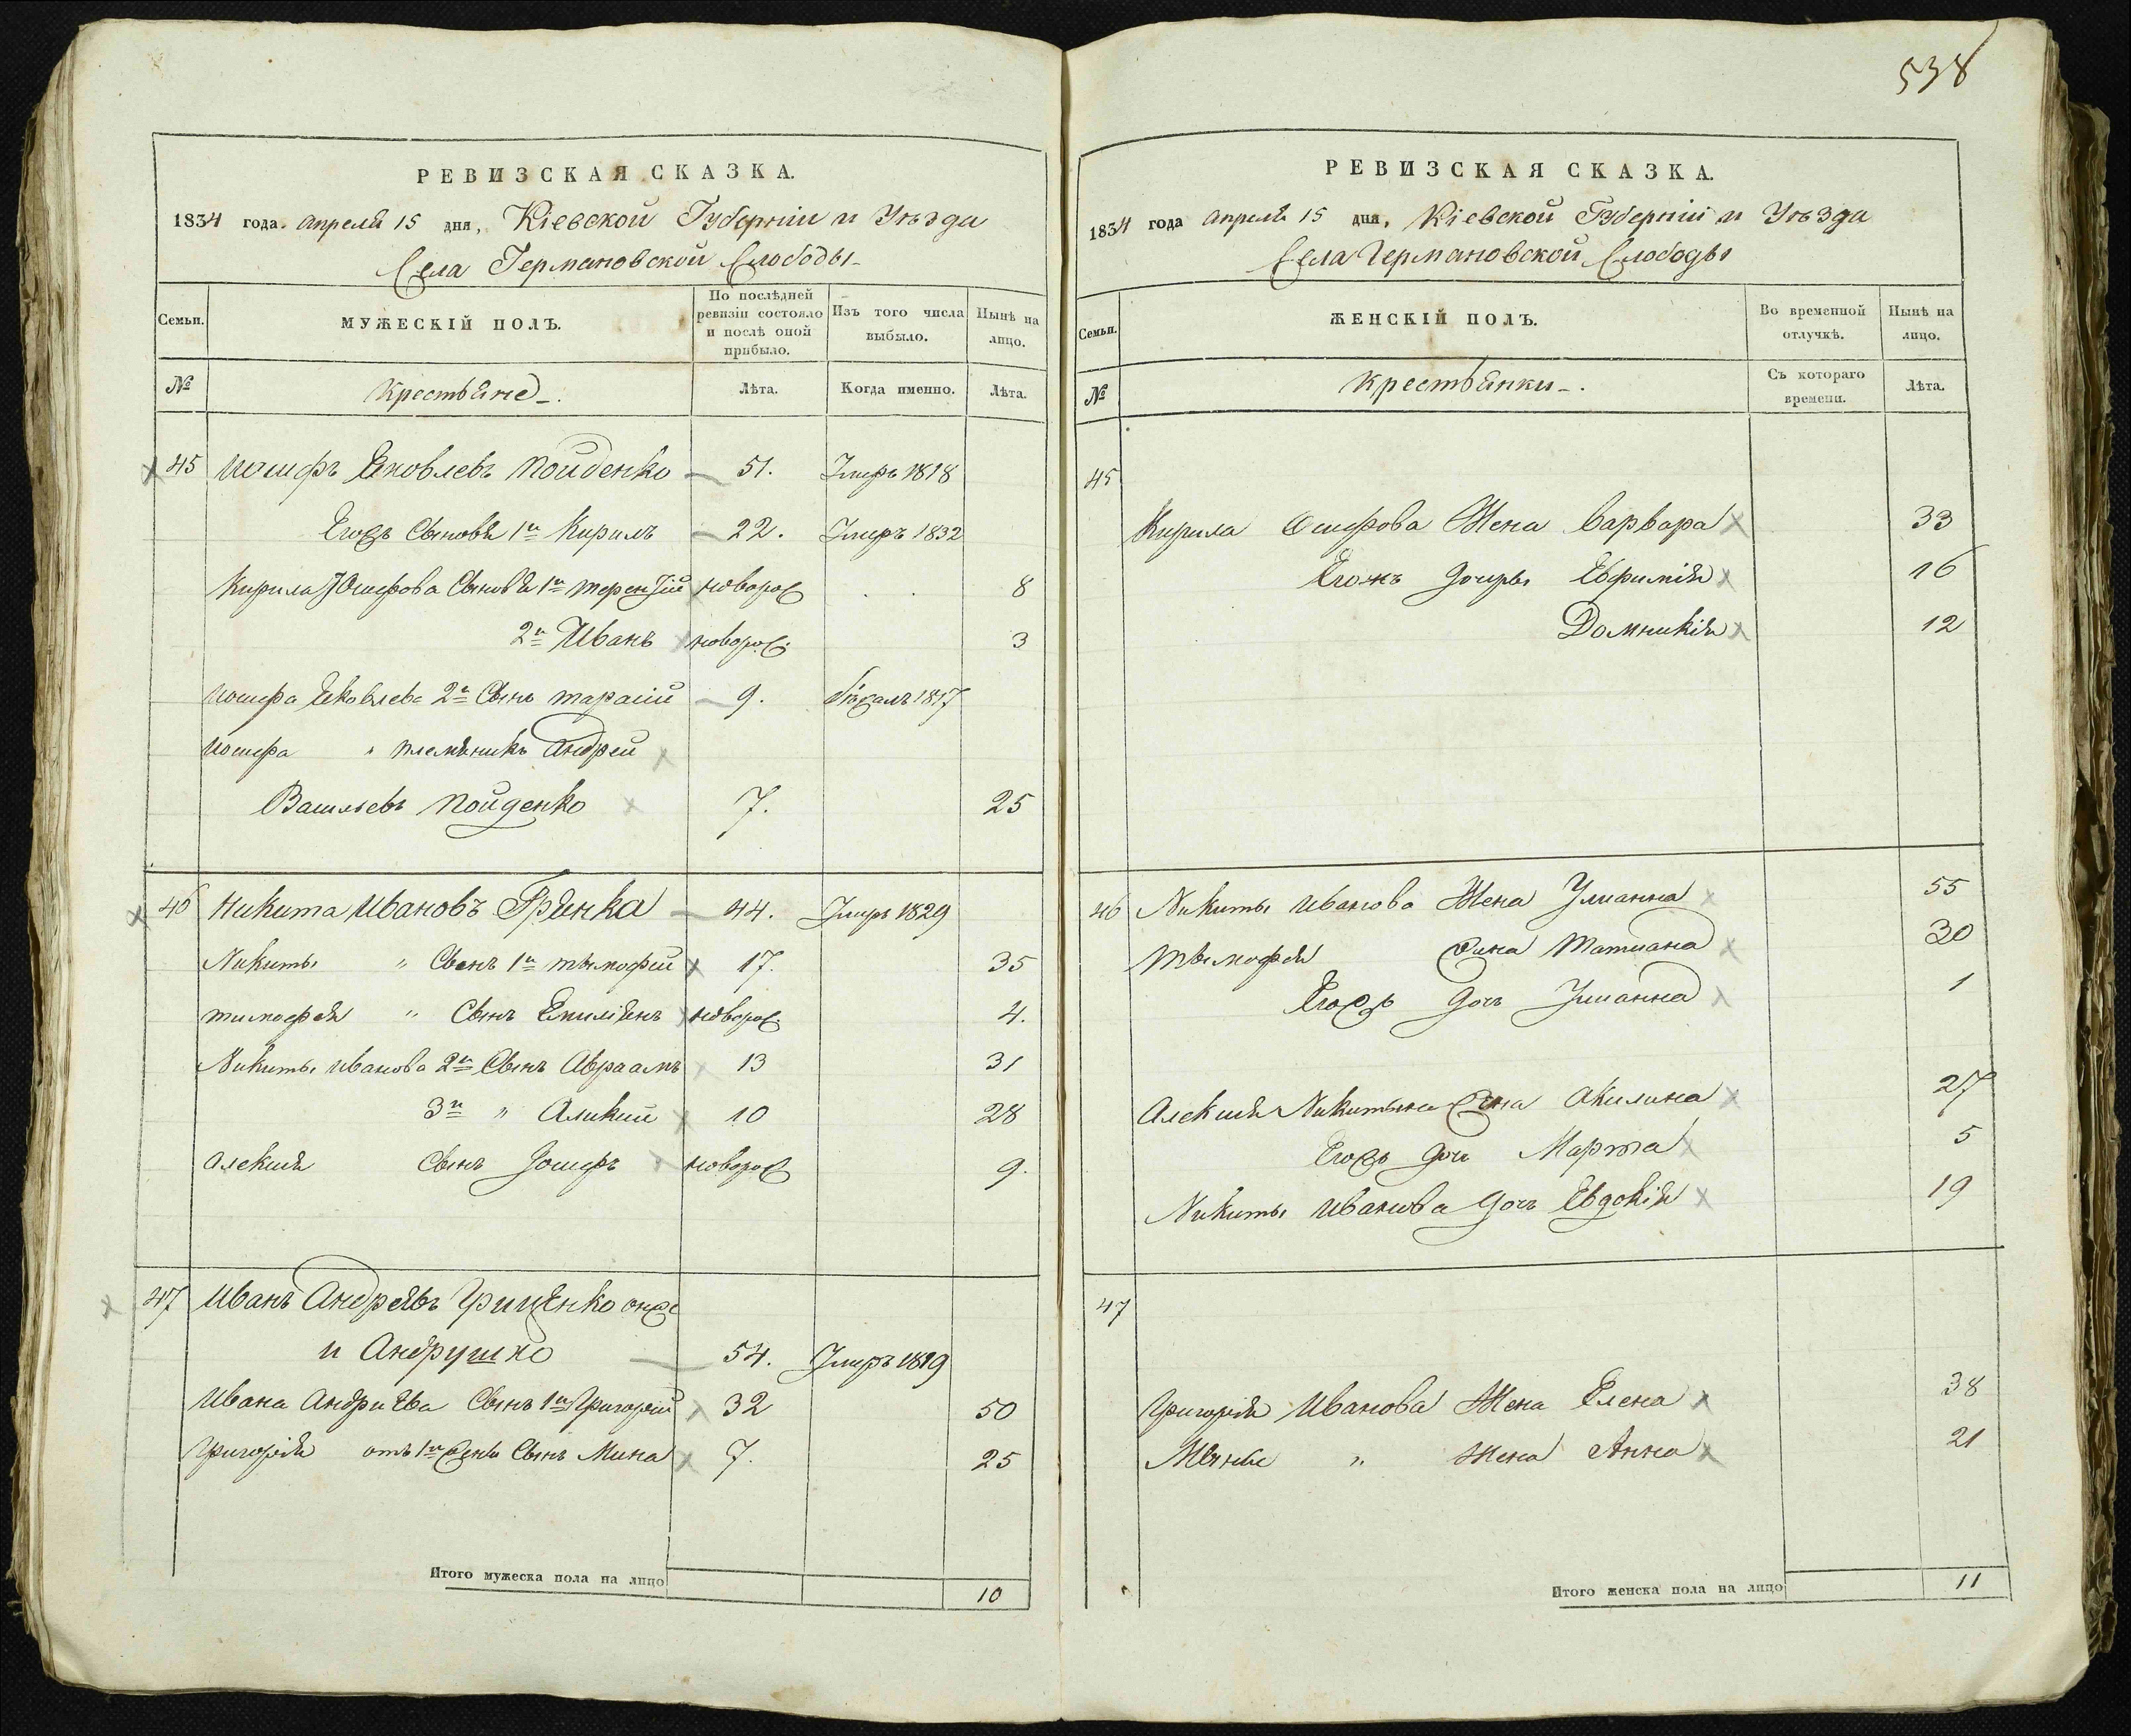 538
РЕВИЗСКАЯ СКАЗКА.
1834 года апреля 15 дня, Кіевской Губерніи и Уѣзда
Села Германовской Слободы
Семьи.
МУЖЕСКІЙ ПОЛЪ.
По послѣдней ревизіи состояло и послѣ оной прибыло.
Изъ того числа выбыло.
Нынѣ на лицо.
№
Крестьяне
Лѣта.
Когда именно.
Лѣта.
45 Иосифъ Яковлевъ Пойденко 51. Умеръ 1818
Егожъ Сыновья 1й Кирилъ 22. Умеръ 1832
Кирила Іосифова Сыновья 1й Терентій новорож 8
2й Иванъ новорож. 3
Иосифа Яковлева 2й Сынъ Тарасій 9. бѣжалъ 1817
Иосифа " племяникъ Андрей
Васильевъ Пойденко 7. 25
46 Никита Ивановъ Грянка 44. Умеръ 1829
Никиты " Сынъ 1й Тымофей 17. 35
Тимофея " Сынъ Емиліянъ новорож. 4.
Никиты Иванова 2й Сынъ Авраамъ 13 31
3й " Аликий 10 28
Алексия Сынъ Іосифъ новорож 9.
47 Иванъ Андреявъ Грицянко онже
и Андрушко 54. Умеръ 1819
Ивана Андриева Сынъ 1й Григорій 32 50
Григорія отъ 1й жены Сынъ Мина 7. 25
Итого мужеска пола на лицо 10
РЕВИЗСКАЯ СКАЗКА.
1834 года апреля 15 дня, Кіевской Губерніи и Уѣзда
Села Германовской Слободы
Семьи.
ЖЕНСКІЙ ПОЛЪ.
Во временной отлучкѣ.
Нынѣ на лицо.
№
Крестьянки
Съ котораго времени.
Лѣта.
45
Кирила Осифова Жена Варвара 33
Егожъ дочеры Евфимія 16
Домникія 12
46 Никиты Иванова Жена Улианна 55
Тымофея жина Татиана 30
Егожъ дочь Улианна 1
Алексия Никитына жена Акилина 27
Егожъ дочь Марта 5
Никиты Иванова дочь Евдокія 19
47
Григорія Иванова Жена Елена 38
Мины " Жена Анна 21
Итого женска пола на лицо 11